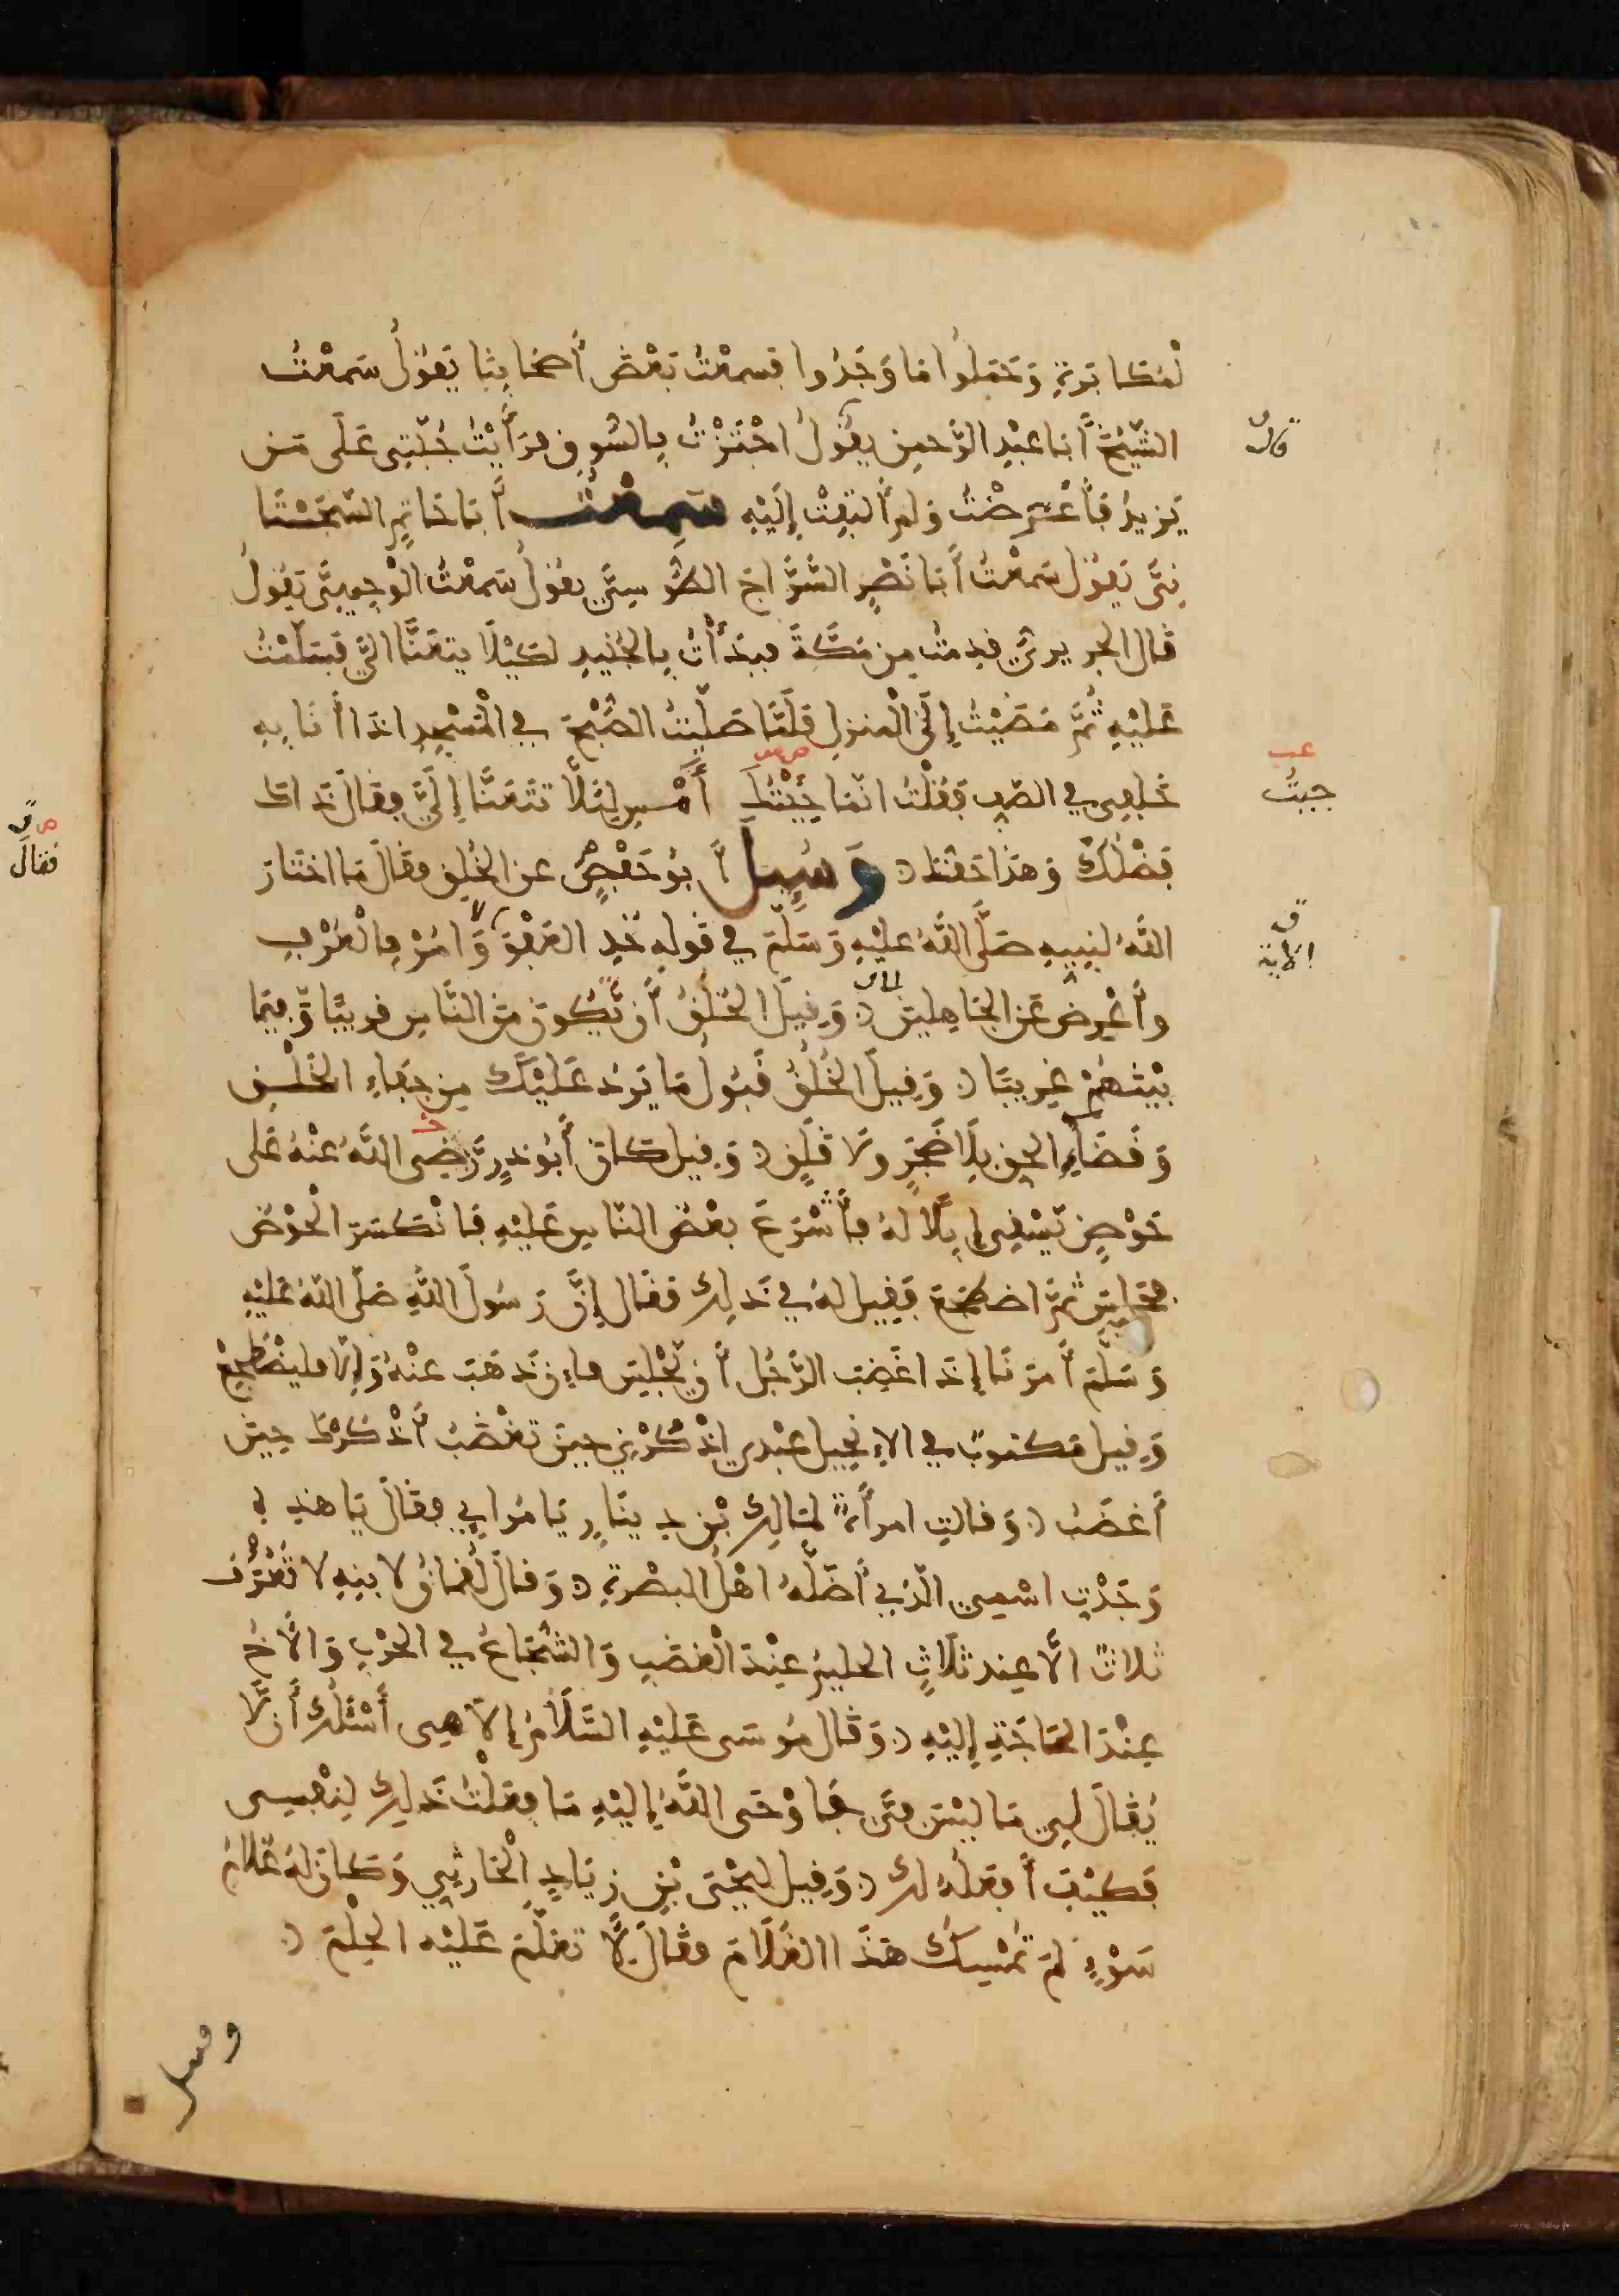 لمكابرة وحملوا ما وجدوا فسمعت بعض أصحابنا يقول سمعت
الشيخ أبا عبد الرحمن يقول اجتزت بالسوق فرأيت جبتي على من
يزيد فأعرضت ولم ألتفت إليه سمعت أبا حاتم السجستا
نى يقول سمعت أبا نصر السراج الطوسي يقول سمعت الوجيهي يقول
قال الجريري قدمت من مكة فبدأت بالجنيد لكيلا يتعنا الي فسلمت
عليه ثم مضيت إلى المنزل فلما صليت الصبح في المسجد اذا أنا به
خلفي في الصف فقلت انما جيتك أمس ليلا تتعنا إلي فقال ذاك
فضلك وهذا حقك وسيل أبو حفص عن الخلق فقال ما اختار
الله لنبيه صلى الله عليه وسلم في قوله خذ العفو وامر بالعرف
وأعرض عن الجاهلين وقيل الخلق أن تكون من الناس قريبا وفيما
بينهم غريبا وقيل الخلق قبول ما يرد عليك من جفاء الخلق
وقضاء الحق بلا ضجر ولا قلق وقيل كان أبو ذر رضي الله عنه على
حوض يسقي إبلا له فأسرع بعض الناس عليه فانكسر الحوض
فجلس ثم اضطجع فقيل له في ذلك فقال إن رسول الله صلى الله عليه
وسلم أمرنا إذا غضب الرجل أن يجلس فإن ذهب عنه وإلا فليضطجع
وقيل مكتوب في الإنجيل عبدي اذكرني حين تغضب أذكرك حين
أغضب وقالت امرأة لمالك بن دينار يا مرايي فقال يا هذه
وجدت اسمي الذي أضله اهل البصرة وقال لقمان لابنه لا تعرف
ثلاث الا عند ثلاث الحليم عند الغضب والشجاع في الحرب والأخ
عند الحاجة إليه وقال موسى عليه السلام إلاهي أسئلك أن لا
يقال لي ما ليس في فأوحى الله إليه ما فعلت ذلك لنفسي
فكيف أفعله لك وقيل ليحيى بن زياد الحارثي وكان له غلام
سوء لم تمسك هذا الغلام فقال لأتعلم عليه الحلم
قال
جيت
الاية
فقال
وقيل